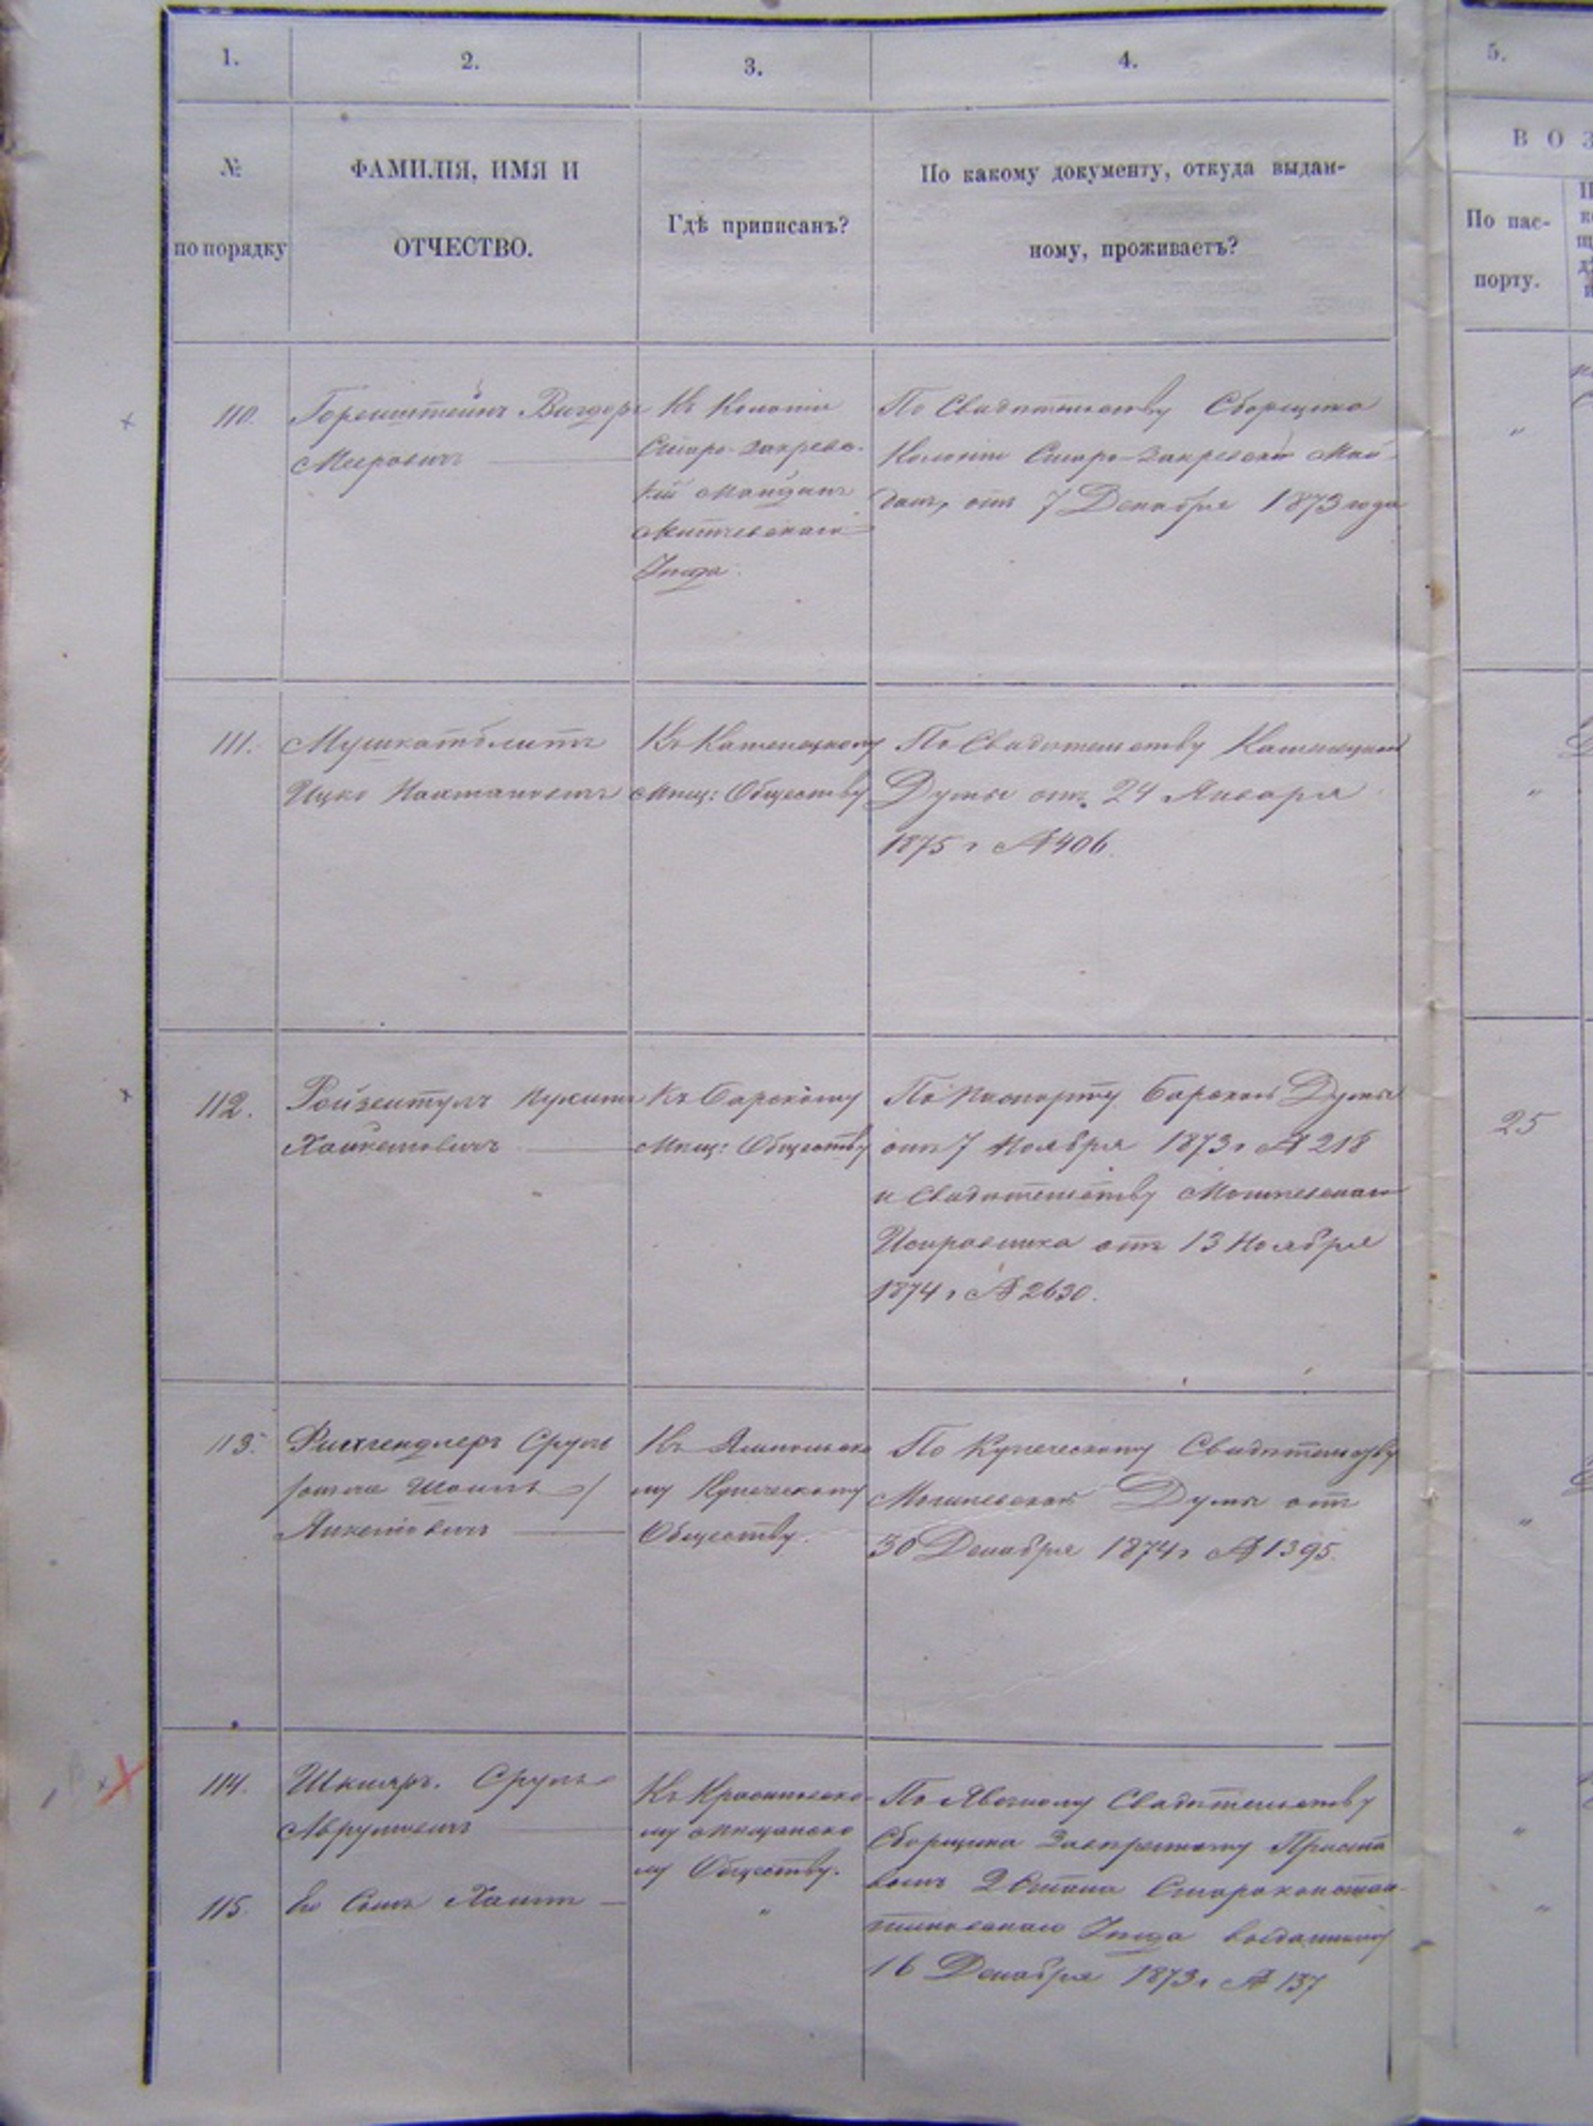 1.
2.
3.
4.
5.
№
по порядку
ФАМИЛІЯ, ИМЯ И
ОТЧЕСТВО.
Гдѣ приписанъ?
По какому документу, откуда выдан-
ному, проживаетъ?
ВОЗ
По пас-
порту.
110.
Горенштейнъ Вигдоръ
Мееровичъ
Къ Колоніи
Старо-Закрев-
кій Майданъ
Литичевскаго
Уѣзда.
По Свидѣтельству Сборщика
Колоніи Старо-Закревскій Май-
данъ, отъ 7 Декабря 1873 года
"
111.
Мушкатблитъ
Ицко Нахмановичъ
Къ Каменецкому
Мѣщ: Обществу
По Свидѣтельству Каменецкой
Думы отъ 24 Января
1875 г №406.
"
112.
Ройзентулъ Нухимъ
Хаикелевичъ
Къ Барскому
Мѣщ: Обществу
По Паспорту Барской Думы
отъ 7 Ноября 1873 г № 218
и Свидѣтельству Могилевскаго
Исправника отъ 13 Ноября
1874 г № 2630.
25
113.
Фишгендлеръ Сруль
Янкелевичъ
Къ Ямпольско
му Купеческому
Обществу.
По Купеческому Свидѣтельству
Могилевской Думы отъ
30 Декабря 1874 г № 1395.
"
114.
Шкляръ. Сруль
Аврумовичъ
Къ Красиловско-
му Мѣщанско
му Обществу.
По Явочному Свидѣтельству
Сборщика Приста
вомъ 2 Стана Староконстан-
тиновскаго Уѣзда выданному
16 Декабря 1873 г № 137
"
115.
Его Сынъ Хаимъ
"
"